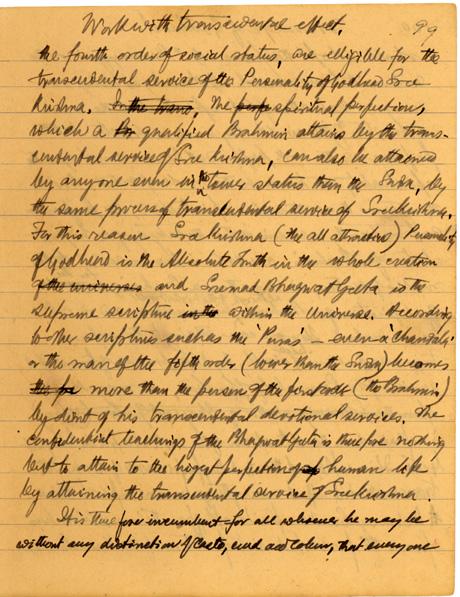 Work with transcendental effect.
99
the fourth order of social status, are elligible for the
transcendental service of the Personality of Godhead Sree
Krishna. In the trans, The perfe spiritual perfection,
which a qualified Brahmin attains by the trans-
cendental service of Sree Krishna, can also be attained
by anyone even in the lower status than the Sudra, by
the same process of transcendental service of Sree Krishna.
For this reason Sree Krishna (the all attractive) Personality
of Godhead is the Absolute Truth in the whole creation
of the universes and Sremad Bhagwat Geeta is the
supreme scripture in the within the Universe. According
to other scriptures such as the 'Puras' - even a 'Chandala'
or the man of the fifth order (lower than the Sudra) becomes
more than the person of the first order (the Brahmin)
by dint of his transcendental devotional services. The
confidential teachings of the Bhagwat Geeta is there fore nothing
but to attain to the highest perfection of human life
by attaining the transcendental service of Sree Krishna.
It is there fore incumbent for all whoever he may be
without any distinction of Caste, creed and Colour, that everyone